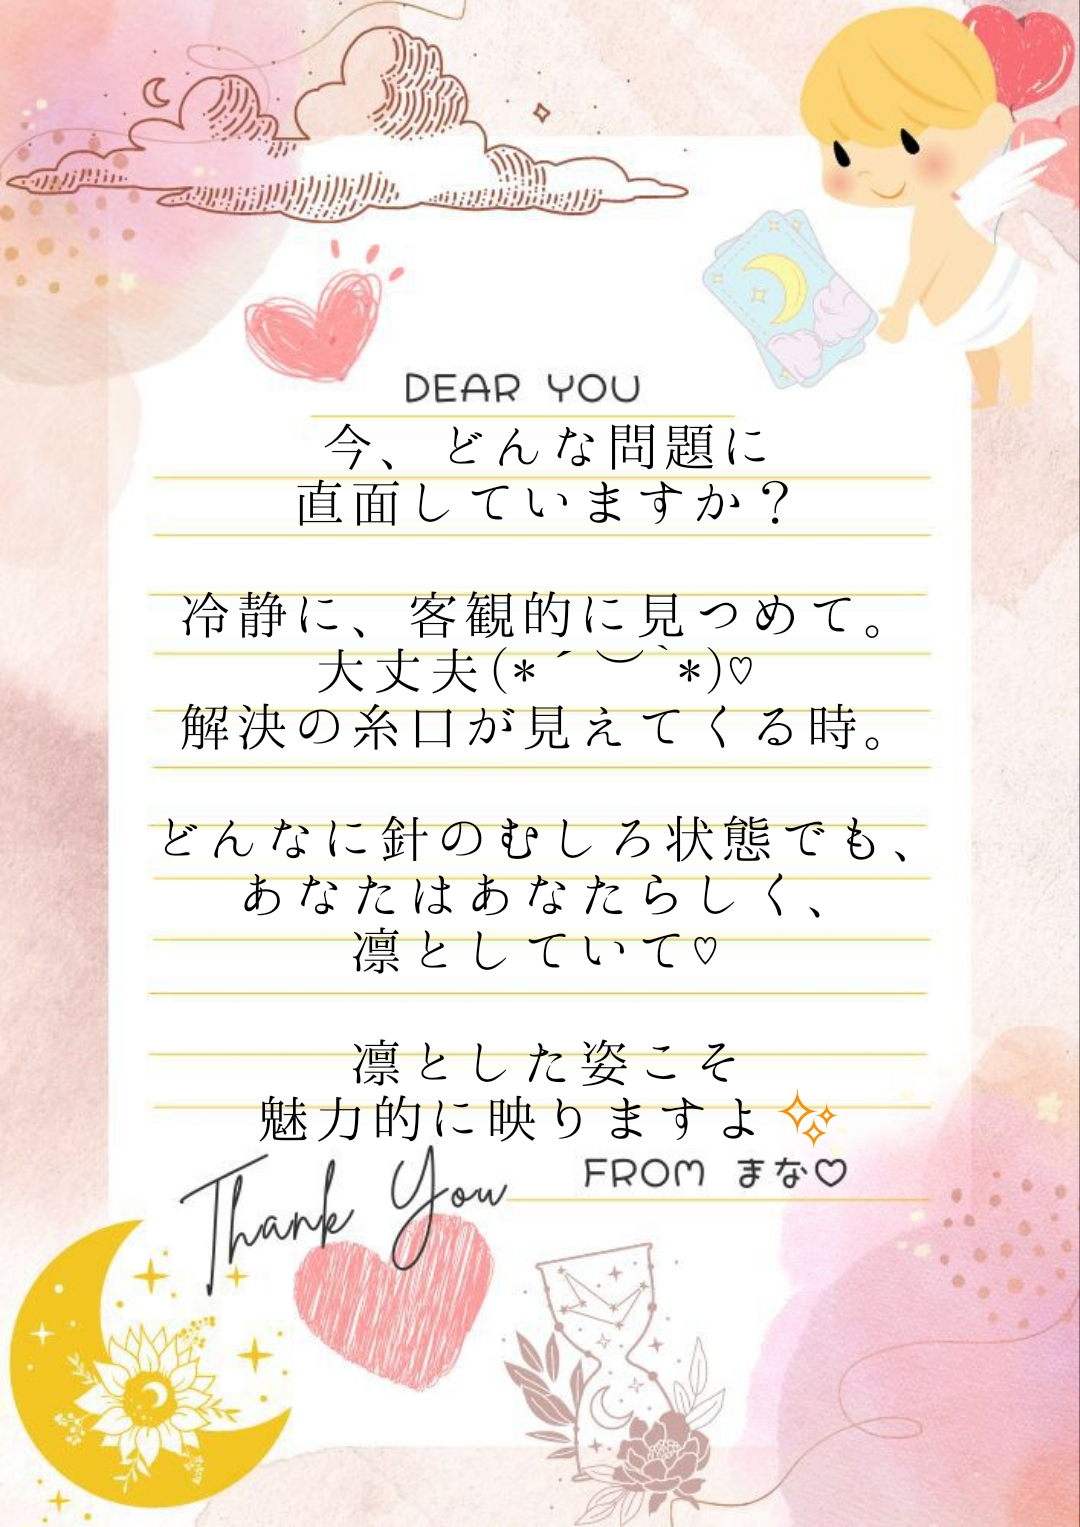 DEAR YOU
今、どんな問題に
直面していますか？
冷静に、客観的に見つめて。
大丈夫(*´︶`*)♡
解決の糸口が見えてくる時。
どんなに針のむしろ状態でも、
あなたはあなたらしく、
凛としていて♡
凛とした姿こそ
魅力的に映りますよ✨
FROM まな♡
Thank You